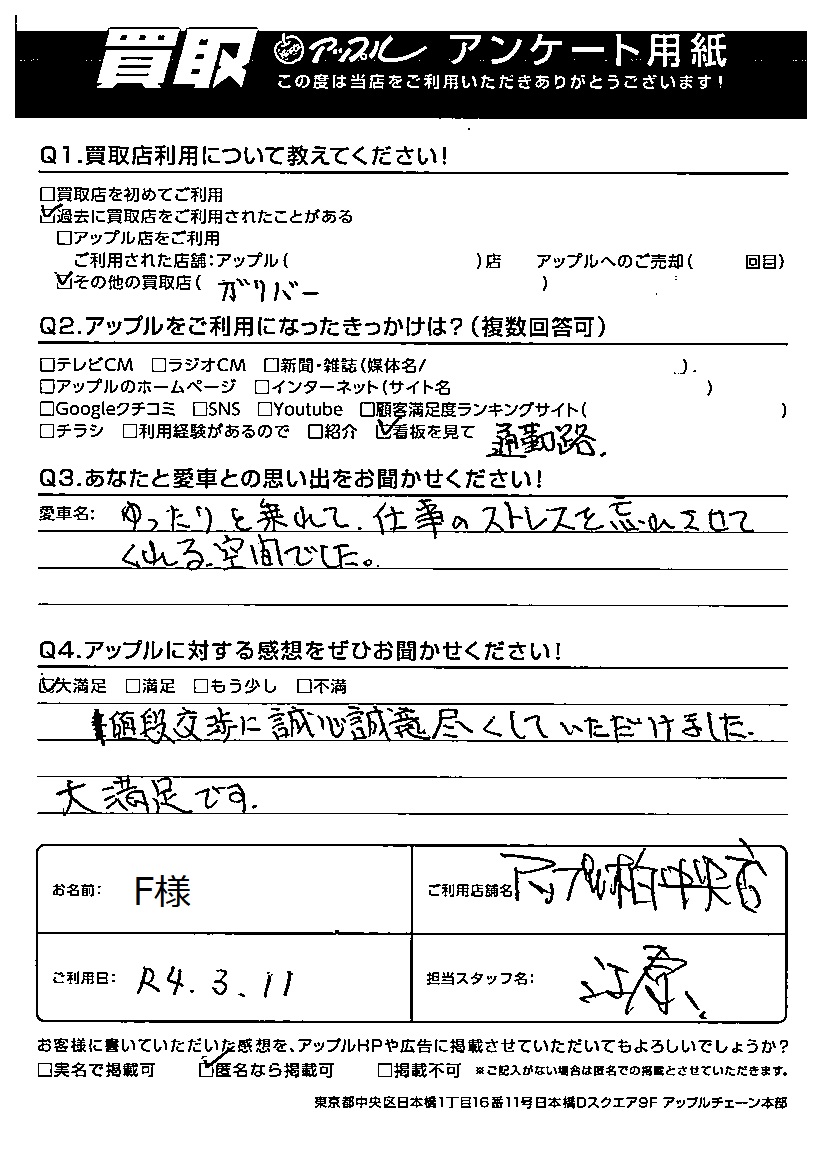 買取 アップル アンケート用紙
この度は当店をご利用いただきありがとうございます!
Q1.買取店利用について教えてください!
□買取店を初めてご利用
☑過去に買取店をご利用されたことがある
□アップル店をご利用
ご利用された店舗:アップル( )店 アップルへのご売却( 回目)
☑その他の買取店( ガリバー )
Q2.アップルをご利用になったきっかけは?(複数回答可)
□テレビCM □ラジオCM □新聞・雑誌(媒体名/ )
□アップルのホームページ □インターネット(サイト名 )
□Googleクチコミ □SNS □Youtube □顧客満足度ランキングサイト( )
□チラシ □利用経験があるので □紹介 ☑看板を見て 通勤路.
Q3.あなたと愛車との思い出をお聞かせください!
愛車名: ゆったりと乗れて、仕事のストレスを忘れさせて
くれる、空間でした。
Q4.アップルに対する感想をぜひお聞かせください!
☑大満足 □満足 □もう少し □不満
値段交渉に誠心誠意尽くしていただけました.
大満足です.
お名前: F様 ご利用店舗名 アップル柏中央店
ご利用日: R4.3.11 担当スタッフ名:
お客様に書いていただいた感想を、アップルHPや広告に掲載させていただいてもよろしいでしょうか?
□実名で掲載可 ☑匿名なら掲載可 □掲載不可 ※ご記入がない場合は匿名での掲載とさせていただきます。
東京都中央区日本橋1丁目16番11号日本橋Dスクエア9F アップルチェーン本部